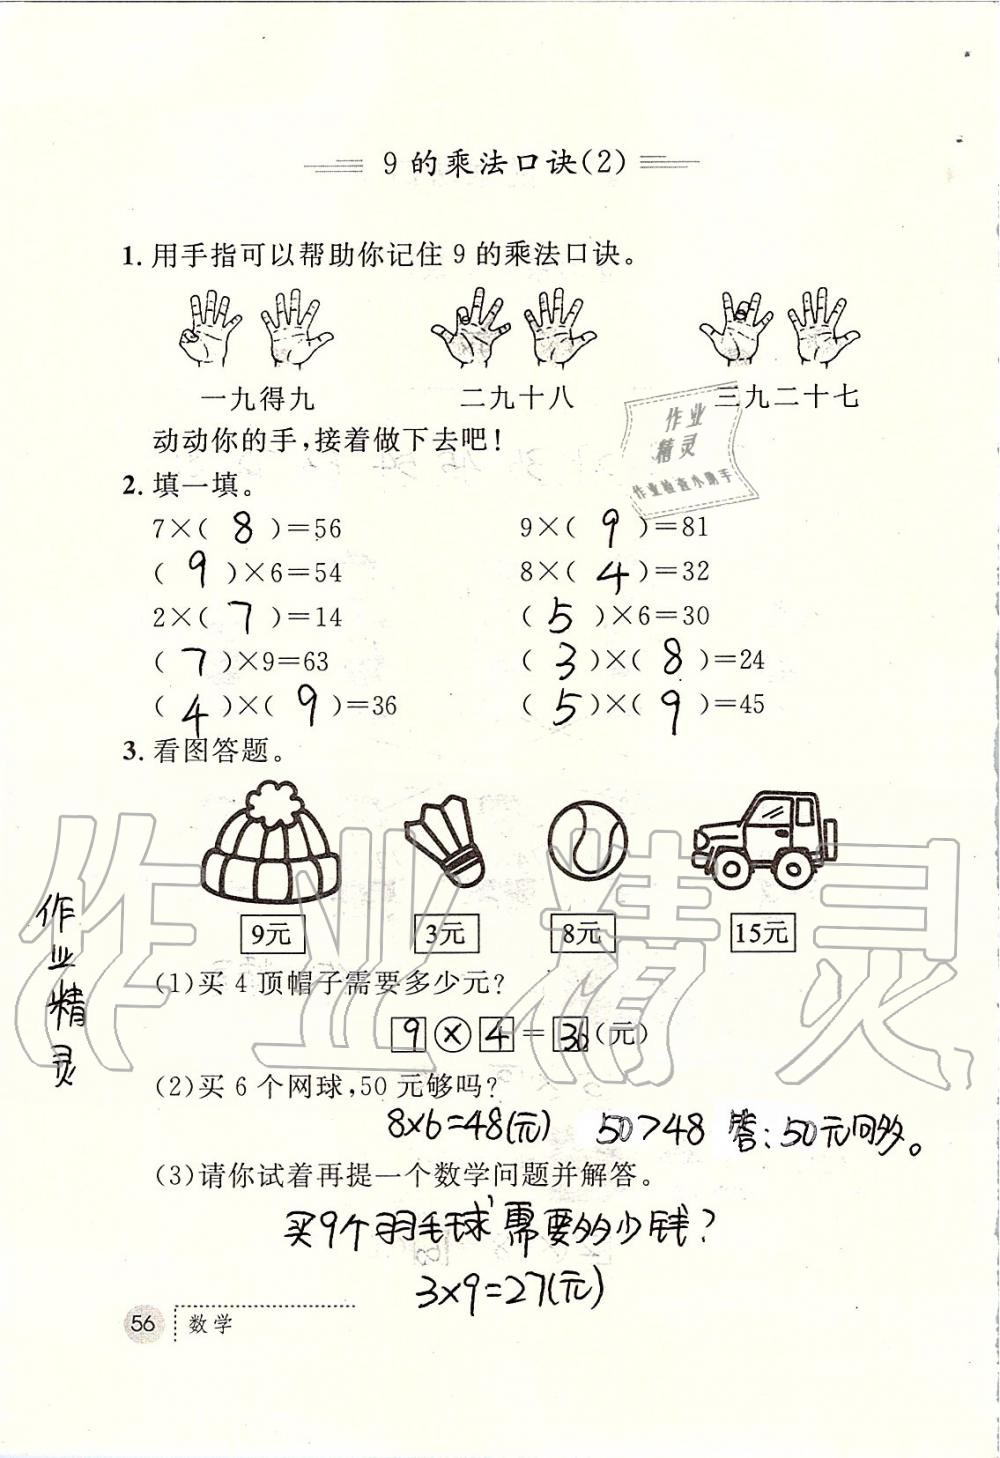 9的乘法口诀(2)
1. 用手指可以帮助你记住9的乘法口诀。
一九得九 二九十八 三九二十七
动动你的手,接着做下去吧!
作业
精灵
作业检查小助手
2. 填一填。
7×( 8 )=56 9×( 9 )=81
( 9 )×6=54 8×( 4 )=32
2×( 7 )=14 ( 5 )×6=30
( 7 )×9=63 ( 3 )×( 8 )=24
( 4 )×( 9 )=36 ( 5 )×( 9 )=45
3. 看图答题。
9元 3元 8元 15元
作业精灵
作业精灵
(1)买4顶帽子需要多少元?
9×4=36(元)
(2)买6个网球,50元够吗?
8×6=48(元) 50>48 答:50元够。
(3)请你试着再提一个数学问题并解答。
买9个羽毛球需要多少钱?
3×9=27(元)
56 数学